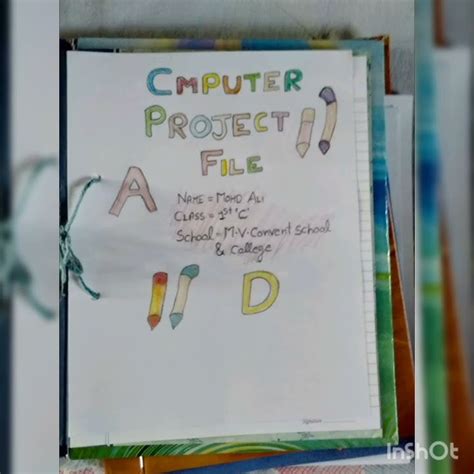 CMPUTER
PROJECT
FILE
A
NAME = MOHD ALI
CLASS = 1st 'C'
SCHOOL = M.V. CONVENT SCHOOL
& COLLEGE
D
Signature
InShOt